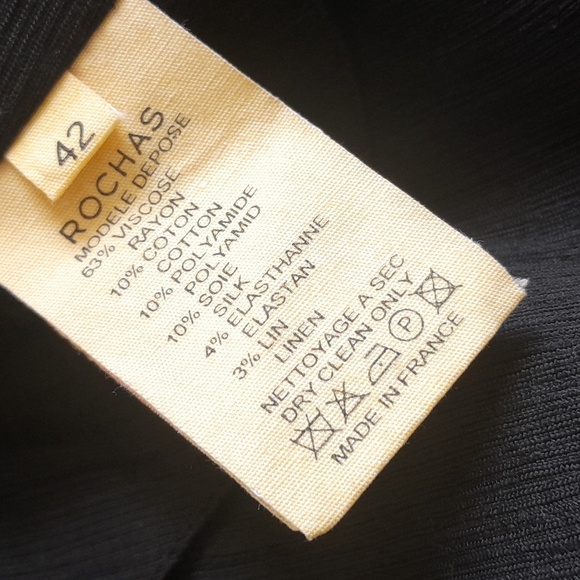 42
ROCHAS
MODELE DEPOSE
63% VISCOSE
RAYON
10% COTON
COTTON
10% POLYAMIDE
POLYAMID
10% SOIE
SILK
4% ELASTHANNE
ELASTAN
3% LIN
LINEN
NETTOYAGE A SEC
DRY CLEAN ONLY
P
MADE IN FRANCE